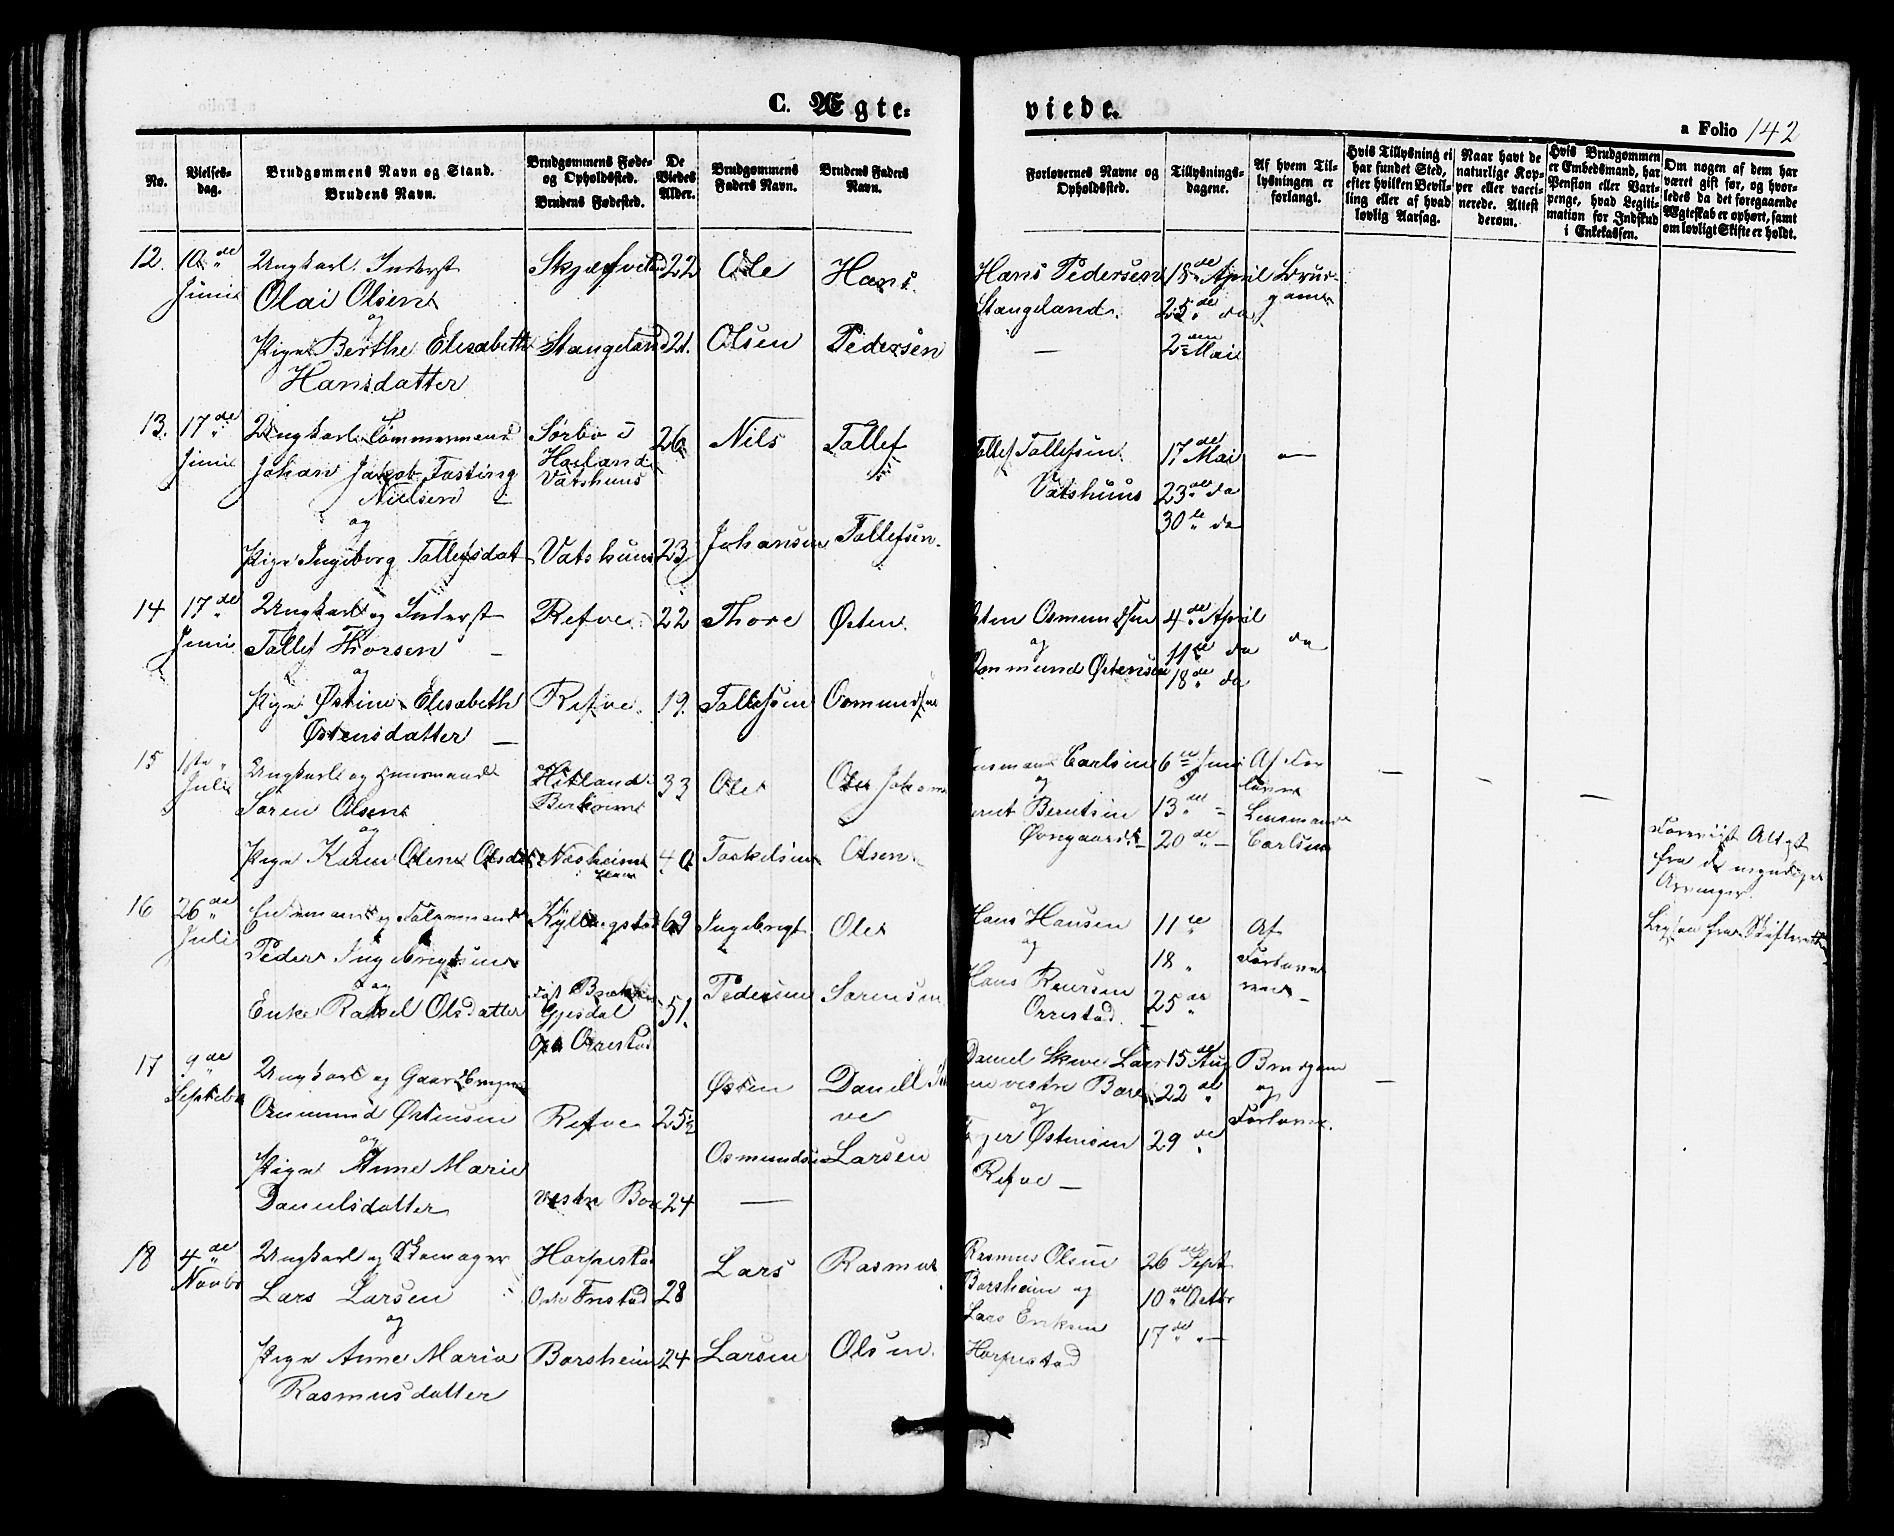 C. Ægte=
viede.
a Folio 142
No.
Vielses-
dag.
Brudgommens Navn og Stand.
Brudens Navn.
Brudgommens Føde-
og Opholdssted.
Brudens Fødested.
De
Viedes
Alder.
Brudgommens
Faders Navn.
Brudens Faders
Navn.
Forlovernes Navne og
Opholdssted.
Tillysnings-
dagene.
Af hvem Til-
lysningen er
forlangt.
Hvis Tillysning ei
har fundet Sted,
efter hvilken Bevil-
ling eller af hvad
lovlig Aarsag.
Naar havt de
naturlige Kop-
per eller vacci-
nerede. Attest
derom.
Hvis Brudgommen
er Embedsmand, har
Pension eller Vart-
penge, hvad Legiti-
mation for Indskud
i Enkekassen.
Om nogen af dem har
været gift før, og hvor-
ledes da det foregaaende
Ægteskab er ophørt, samt
om lovligt Skifte er holdt.
12. 10de Ungkarl Inderst 22 Ole Hans Hans Pedersen 18de April Brud-
Juni Olai Olsen Stangeland 25de da gom
og
Pige Berthe Elisabeth Stangeland 21. Olsen Pedersen — 2den Mai
Hansdatter
13. 17de Ungkarl Tømmermand Sørbø i 26 Nils Tollef Tollef Tollefsen 17de Mai —
Juni Johan Jakob Fasting Høiland Vatshuus 23de da
Nielsen Vatshuus 30te da
og
Pige Ingeborg Tollefsdat Vatshuus 23 Johansen Tollefsen.
14 17de Ungkarl og Inderst Refve 22 Thore Østen Østen Osmundsen 4de April
Juni Tollef Thorsen — og 11te da da
og Osmund Østensen 18de da
Pige Østine Elisabeth Refve. 19. Tollefsen Osmundsen
Østensdatter —
15 1ste Ungkarl og Huusmand Hetland 33 Ole Ole Johan Carlsen 6te Juni Af For
Juli Søren Olsen og lover
og Bernt Berntsen 13de — Lensmand
Pige Karen Olene Olsdt Næsheim 40 Taskelsen Olsen Øvregaard — 20de — Carlsen
16 26de Enkemand og 69 Ingebrigt Ole Hans Hansen 11te Af
Juli Peder Ingebrigtsen og 18 Forlover
og Hans 25de
Enke Rakel Olsdatter Gjesdal 51. Pedersen Sørensen Orrestad.
Oph Orrestad
fra Skifteretten
17 9de Ungkarl og Gaardbruger Østen Daniel Daniel Skeve Lars 15de Aug Brudgom
Septebr Osmund Østensen Refve 25½ ve vestre Bore 22de og
og og Forlover.
Pige Anne Marie Osmundsen Larsen Østensen 29de
Danielsdatter vestre Bore 24 — Refve —
18 4de Ungkarl og Skomager Horpestad Lars Rasmus Rasmus Olsen 26de Sept
Novbr Lars Larsen 28 Borsheim og 10de Octbr
og Lars Eriksen 17de —
Pige Anne Maria Borsheim 24 Larsen Olsen. Horpestad
Rasmusdatter